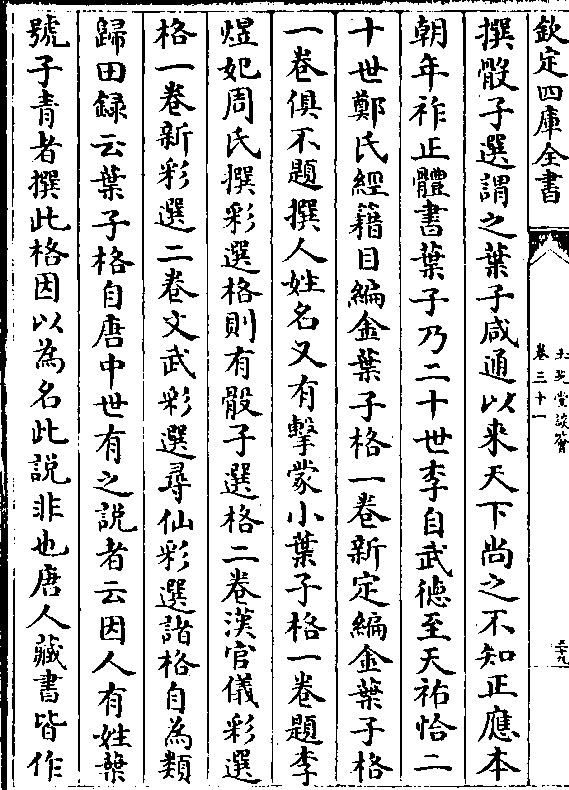 欽定四庫全書
卷三十一
撰骰子選謂之葉子咸通以來天下尚之不知正應本
朝年祚正體書葉子乃二十世李自武德至天祐恰二
十世鄭氏經籍目編金葉子格一卷新定編金葉子格
一卷俱不題撰人姓名又有擊蒙小葉子格一卷題李
煜妃周氏撰彩選格則有骰子選格二卷漢官儀彩選
格一卷新彩選二卷文武彩選尋仙彩選諸格自為類
歸田録云葉子格自唐中世有之説者云因人有姓葉
號子青者撰此格因以為名此説非也唐人藏書皆作